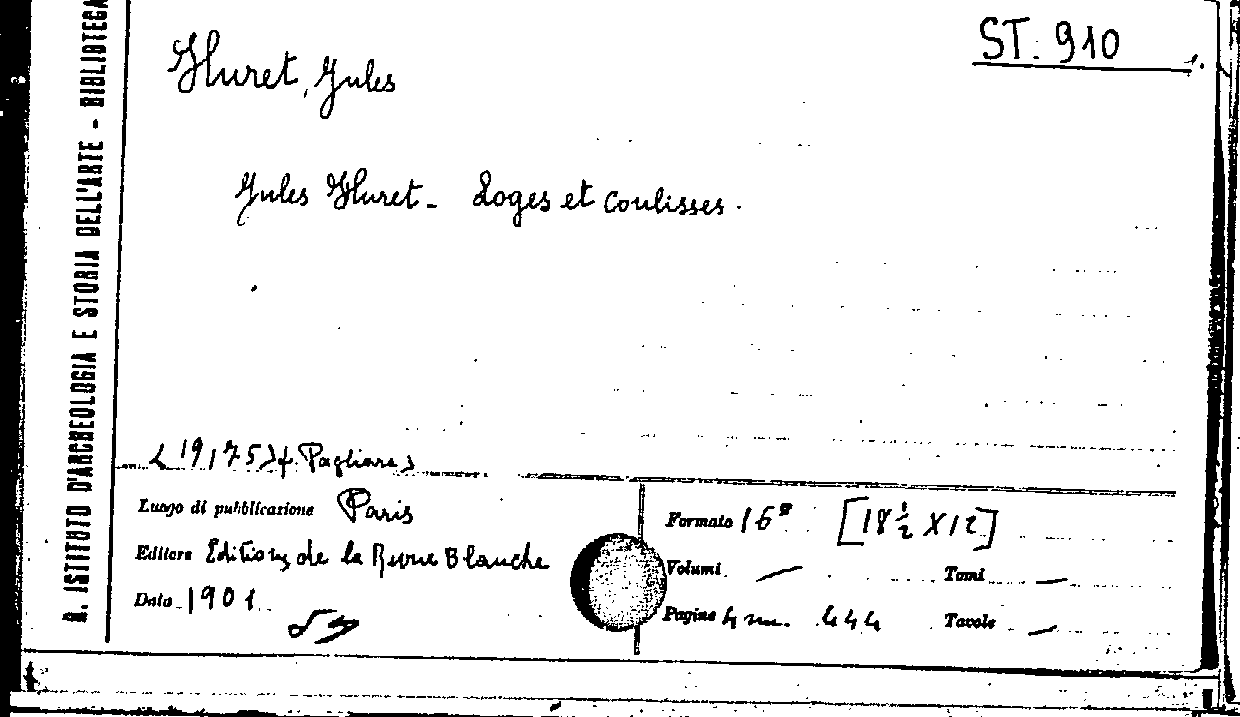 ST. 910
Huret, Jules
Jules Huret - Loges et coulisses.
R. ISTITUTO D'ARCHEOLOGIA E STORIA DELL'ARTE - BIBLIOTECA
Luogo di pubblicazione Paris
Editore Editions de la Revue Blanche
Data 1901
Formato 16° [18 ½ X 12]
Volumi — Tomi —
Pagine 4 nn. 444 Tavole —